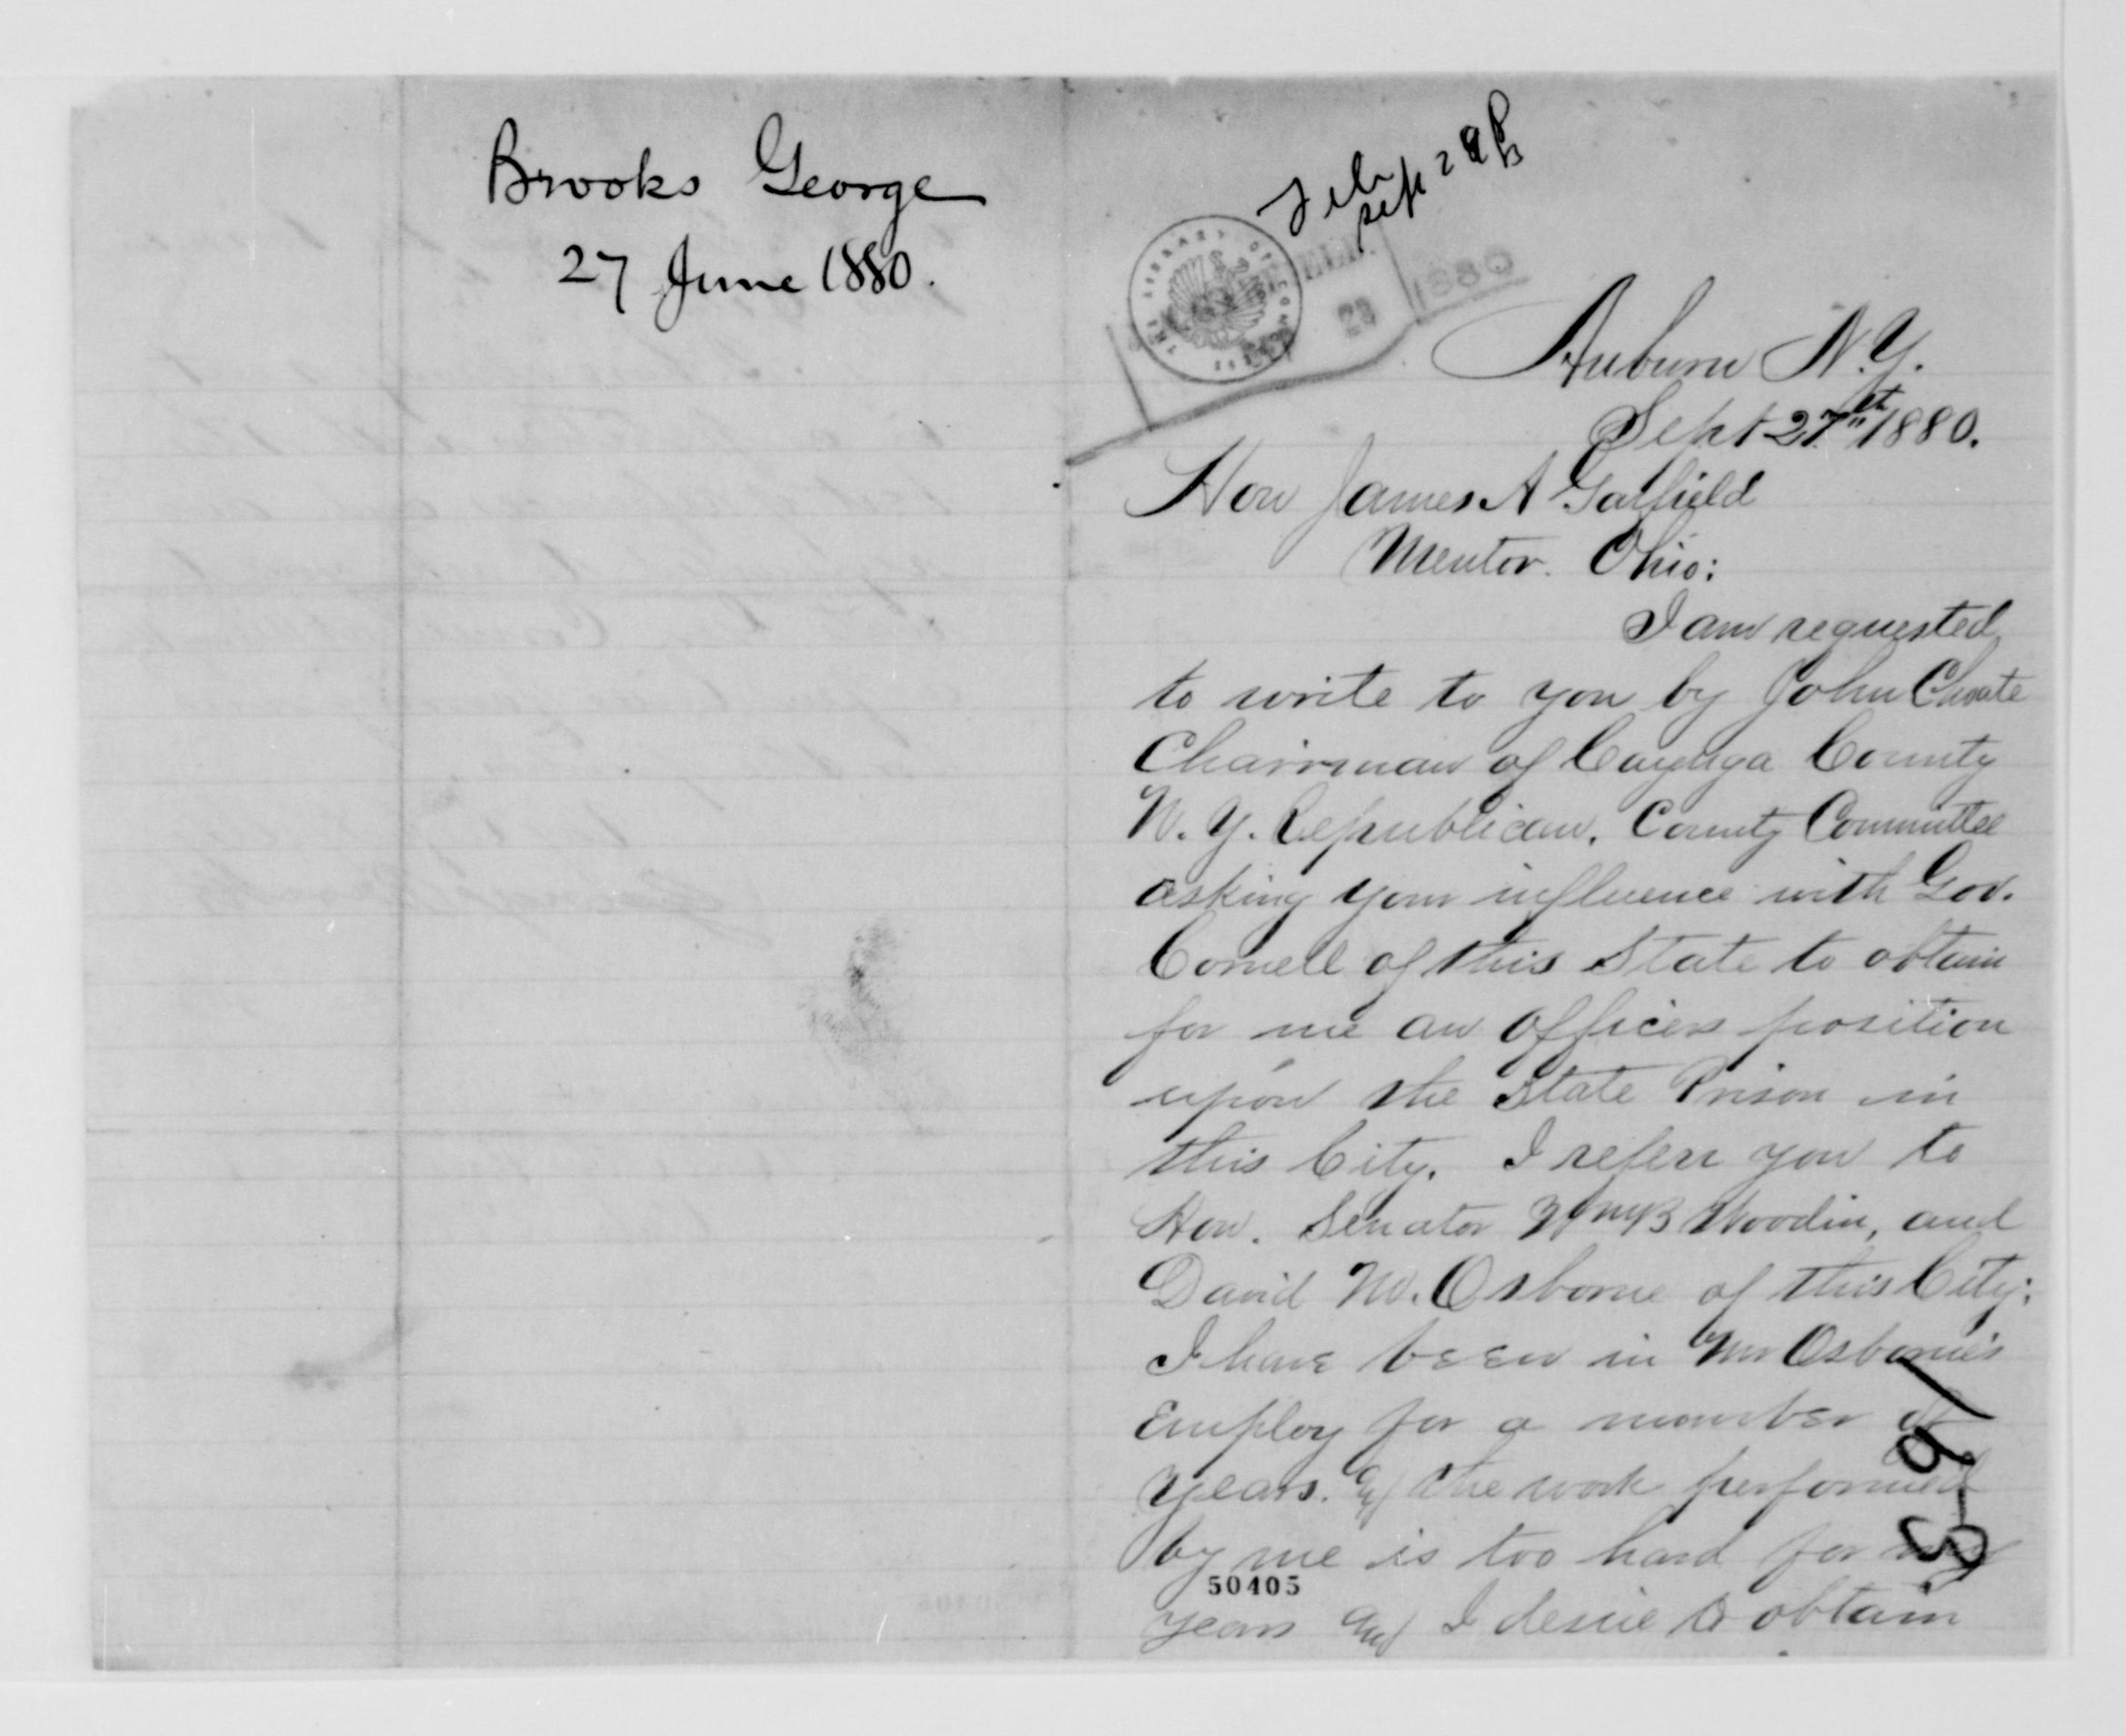 Brooks George
27 June 1880.
Sept 28
THE LIBRARY OF CONGRESS
28
1880
Auburn N.Y.
Sept 27th 1880.
Hon James A Garfield
Mentor. Ohio:
I am requested
to write to you by John Choate
Chairman of Cayuga County
N. Y. Republican. County Committee
asking your influence with Gov.
Cornell of this State to obtain
for me an officers position
upon the State Prison in
this City. I referr you to
Hon. Senator Wm B Woodin, and
David M. Osborne of this City:
I have been in Mr Osborne's
Employ for a number of
years. & the work performed
by me is too hard for my
50405
years and I desire to obtain